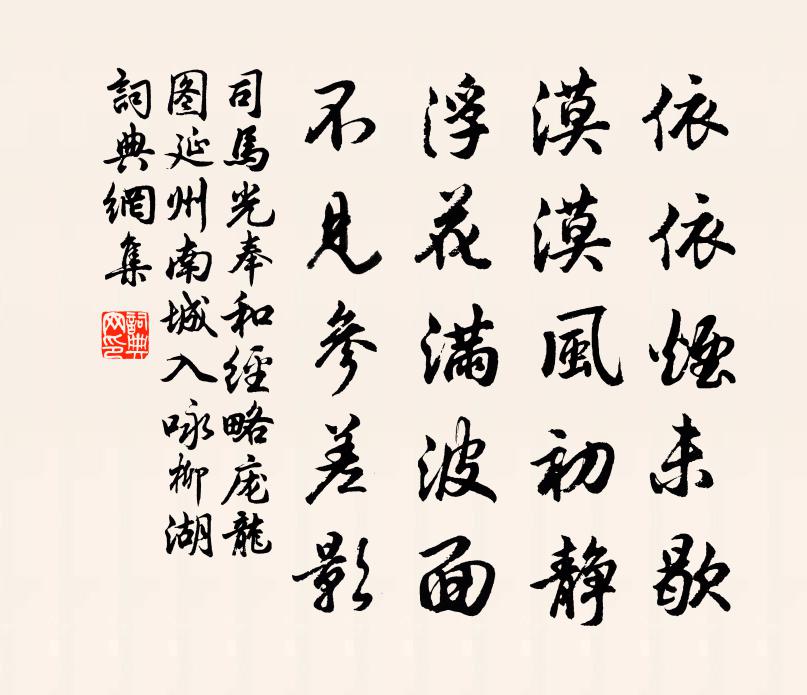 依依煙未歇
漠漠風初静
浮花滿波面
不見參差影
司馬光奉和經略庞龍
图延州南城八咏柳湖
詞典網集
詞典
网印